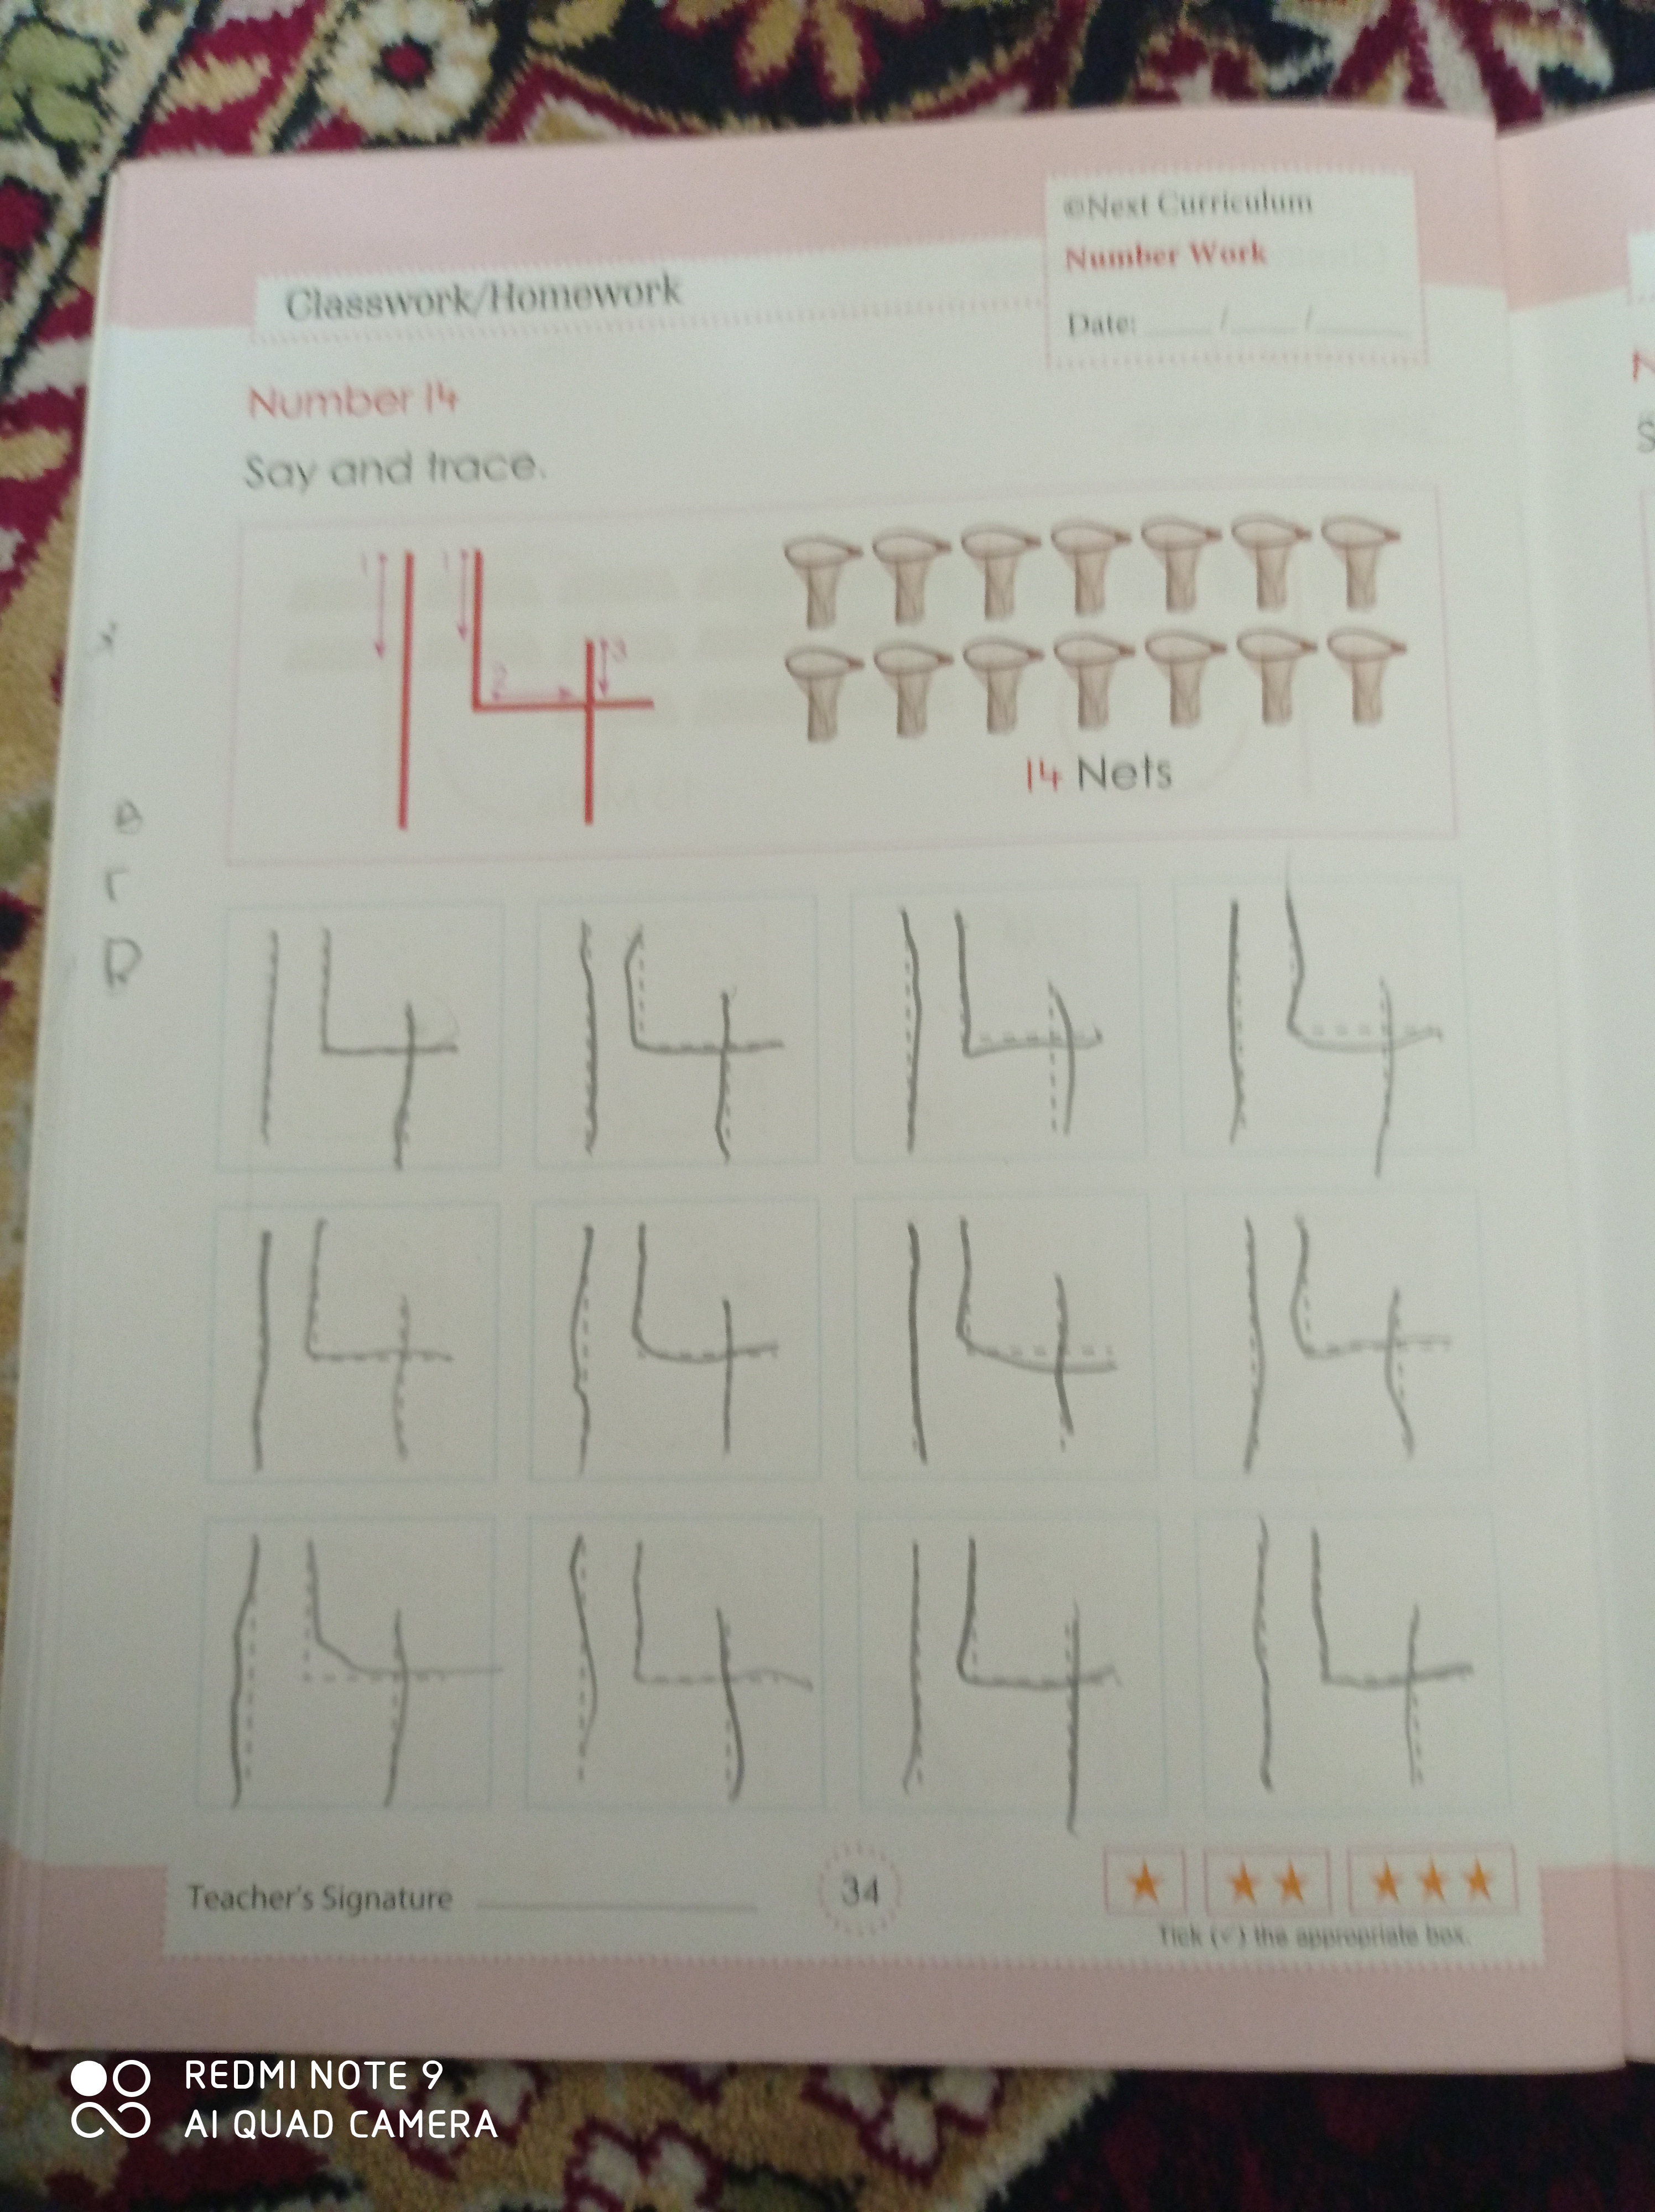 ©Next Curriculum
Number Work
Date: ____ /____ /______
Classwork/Homework
Number 14
Say and trace.
1 1 2 3
14
14 Nets
14 14 14 14
14 14 14 14
14 14 14 14
Γ
D
Teacher's Signature ____________________
34
Tick (✓) the appropriate box.
REDMI NOTE 9
AI QUAD CAMERA